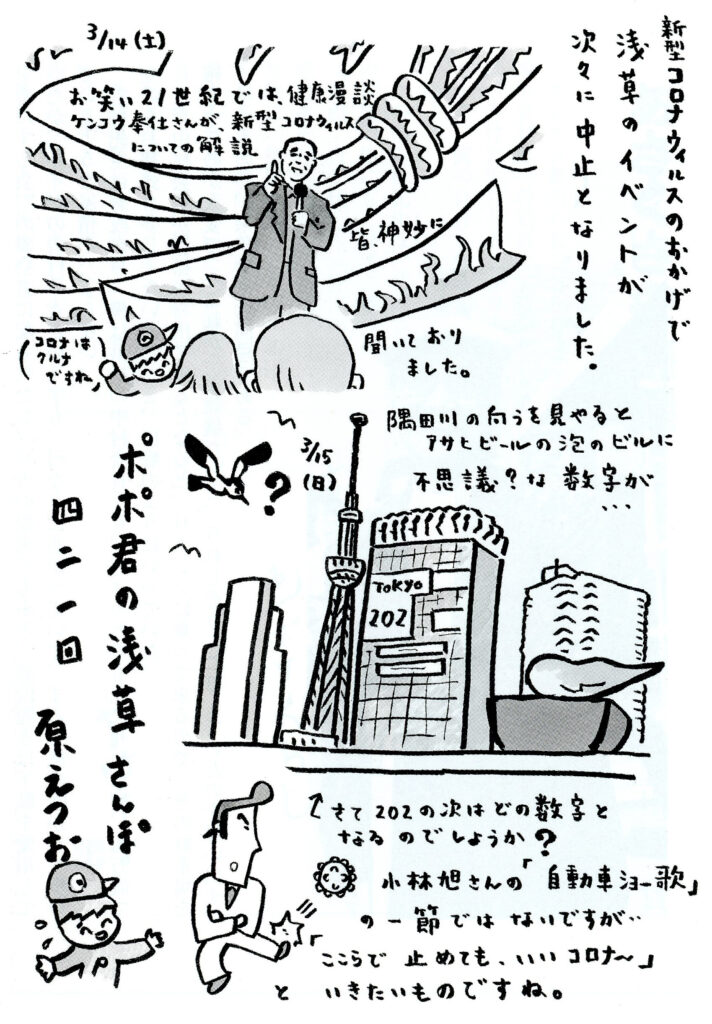 新型コロナウィルスのおかげで
浅草のイベントが
次々に中止となりました。
3/14(土)
お笑い21世紀では、健康漫談
ケンコウ奉仕さんが、新型コロナウィルス
についての解説
皆、神妙に
聞いており
ました。
(コロナは
クルナ
ですね)
隅田川の向うを見やると
アサヒビールの泡のビルに
不思議?な数字が
…
3/15
(日)
?
TOKYO
202
ポポ君の浅草さんぽ
四二一回
原えつお
さて202の次はどの数字と
なるのでしょうか?
小林旭さんの「自動車ショー歌」
の一節ではないですが‥
「ここらで止めても、いいコロナ〜」
といきたいものですね。